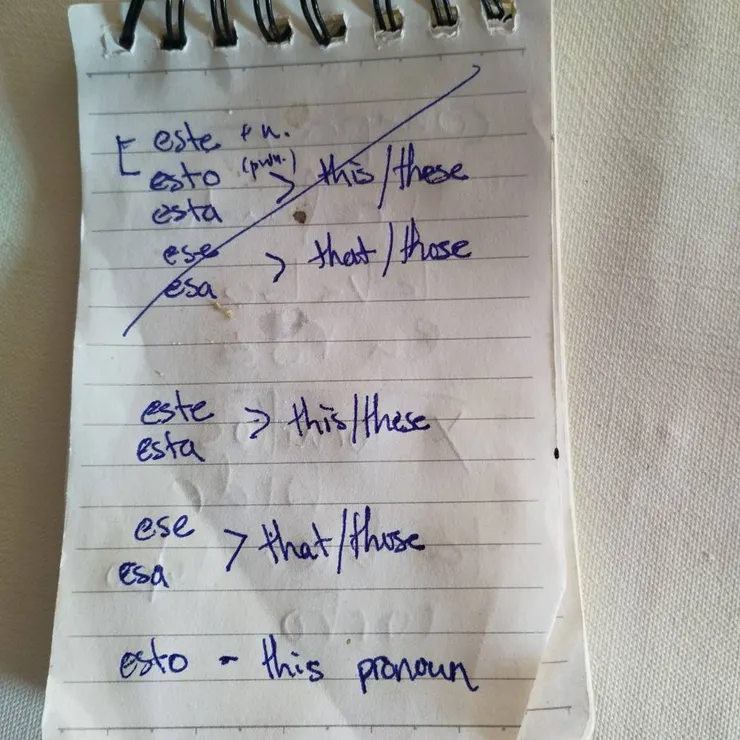 este + n.
esto (pron.) > this/these
esta
ese > that/those
esa
este > this/these
esta
ese > that/those
esa
esto - this pronoun